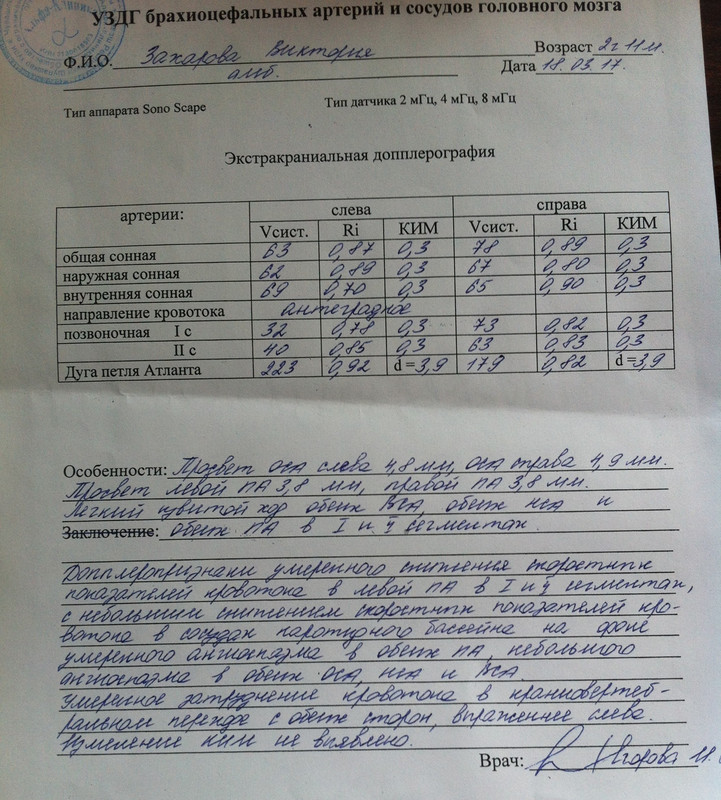 УЗДГ брахиоцефальных артерий и сосудов головного мозга
Ф.И.О. Захарова Виктория Возраст 2г 11м.
амб. Дата 18.03.17.
Тип аппарата Sono Scape Тип датчика 2 мГц, 4 мГц, 8 мГц
Экстракраниальная допплерография
артерии: слева справа
Vсист. Ri КИМ Vсист. Ri КИМ
общая сонная 63 0,87 0,3 78 0,89 0,3
наружная сонная 62 0,89 0,3 67 0,80 0,3
внутренняя сонная 69 0,70 0,3 65 0,90 0,3
направление кровотока антеградное
позвоночная I с 32 0,78 0,3 73 0,82 0,3
II с 40 0,85 0,3 63 0,83 0,3
Дуга петля Атланта 223 0,92 d=3,9 179 0,82 d=3,9
Особенности: Просвет ОСА слева 4,8 мм, ОСА справа 4,9 мм.
Просвет левой ПА 3,8 мм, правой ПА 3,8 мм.
Легкий извитой ход обеих ВСА, обеих НСА и
Заключение: обеих ПА в I и II сегментах.
Допплерпризнаки умеренного снижения скоростных
показателей кровотока в левой ПА в I и II сегментах,
с небольшим снижением скоростных показателей кро-
вотока в сосудах каротидного бассейна на фоне
умеренного ангиоспазма в обеих ПА, небольшого
ангиоспазма в обеих ОСА, НСА и ВСА.
Умеренное затруднение кровотока в краниовертеб-
ральном переходе с обеих сторон, выраженнее слева.
Изменение КИМ не выявлено.
Врач: Егорова И.